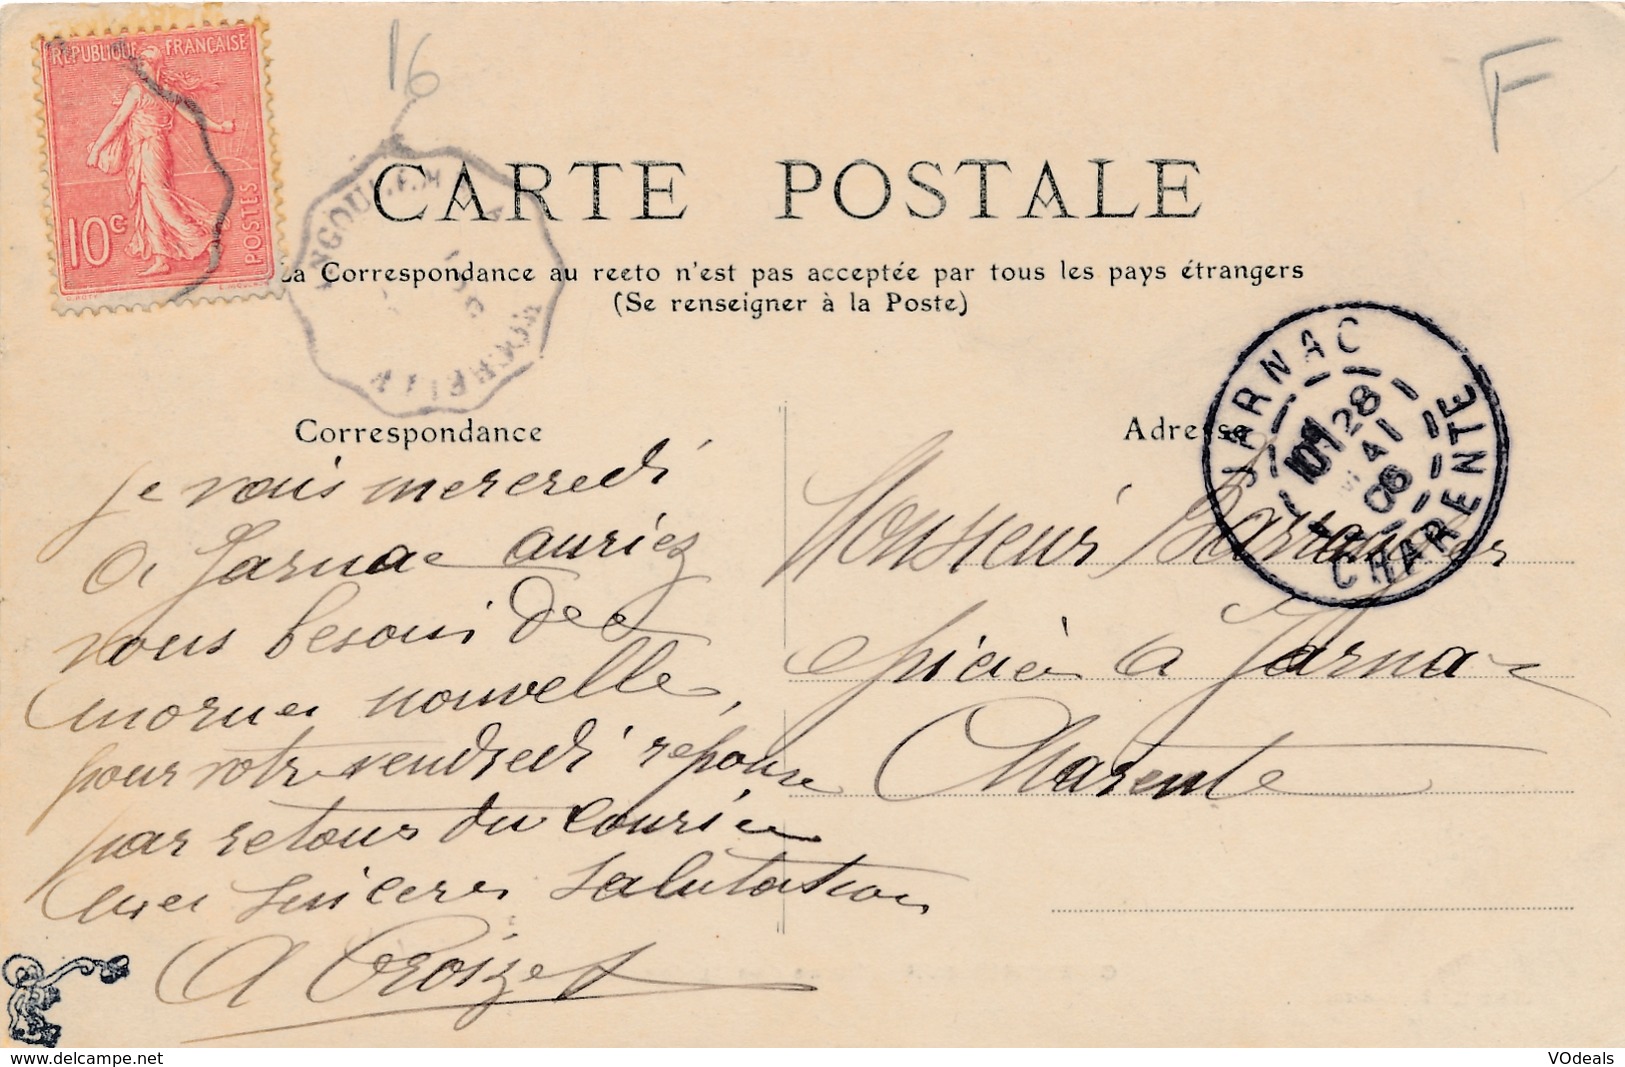 16
F
RÉPUBLIQUE FRANÇAISE
10c
POSTES
CARTE POSTALE
La Correspondance au recto n'est pas acceptée par tous les pays étrangers
(Se renseigner à la Poste)
JARNAC
28
MAI
06
CHARENTE
Correspondance
Je vais mercredi
a Jarnac auriez
vous besoin de
morues nouvelles,
pour votre vendredi reponse
par retour du courier
mes sinceres salutation
A Croizet
Adresse
Monsieur
epicier a Jarnac
Charente
VOdeals